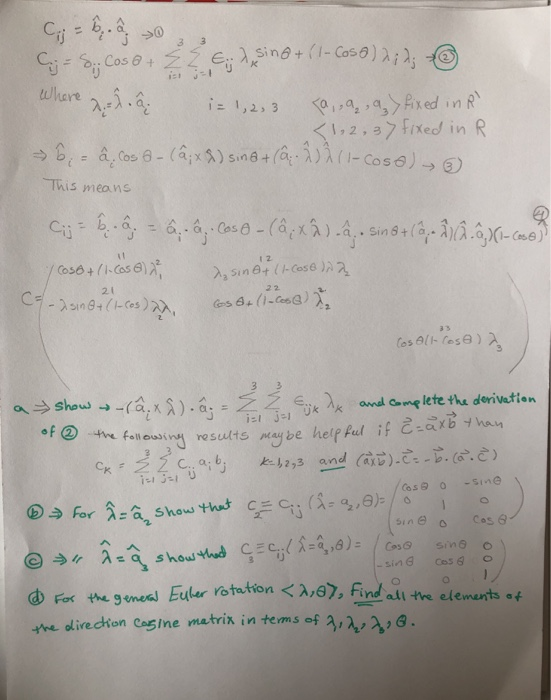 C_ij = b̂_i · â_j →①
C_ij = δ_ij Cosθ + Σ_{i=1}^{3} Σ_{j=1}^{3} ϵ_ij λ_k sinθ + (1-Cosθ) λ_i λ_j →②
where λ_i = λ̂ · â_i i = 1,2,3 <a₁,a₂,a₃> fixed in R'
<1,2,3> fixed in R
⇒ b̂_i = â_i Cosθ - (â_i x λ̂) sinθ + (â_i · λ̂) λ̂ (1-Cosθ) → ③
This means
④
C_ij = b̂_i · â_j = â_i · â_j · Cosθ - (â_i x λ̂) · â_j · sinθ + (â_i · λ̂)(λ̂ · â_j)(1-Cosθ)
11 12
Cosθ + (1-Cosθ) λ₁² λ₃ sinθ + (1-Cosθ) λ₁ λ₂
C =
21 22
-λ sinθ + (1-Cos) λ₂ λ₁ Cosθ + (1-Cosθ) λ₂²
33
Cosθ(1-Cosθ) λ₃
a ⇒ show → -(â_i x λ̂) · â_j = Σ_{i=1}^{3} Σ_{j=1}^{3} ϵ_ijk λ_k and complete the derivation
of ② the following results may be helpful if c⃗ = a⃗ x b⃗ than
C_k = Σ_{i=1}^{3} Σ_{j=1}^{3} C_ij a_i b_j k=1,2,3 and (a⃗xb⃗)·c⃗ = -b⃗·(a⃗·c⃗)
ⓑ ⇒ For λ̂ = â₂ show that C₂ ≡ C_ij (λ̂ = a₂, θ) = (Cosθ 0 -sinθ
0 1 0
sinθ 0 Cosθ)
ⓒ ⇒ 〃 λ̂ = â₃ show that C₃ ≡ C_ij (λ̂ = â₃, θ) = (Cosθ sinθ 0
-sinθ Cosθ 0
0 0 1)
ⓓ For the general Euler rotation <λ,θ>, Find all the elements of
the direction cosine matrix in terms of λ₁, λ₂, λ₃, θ.